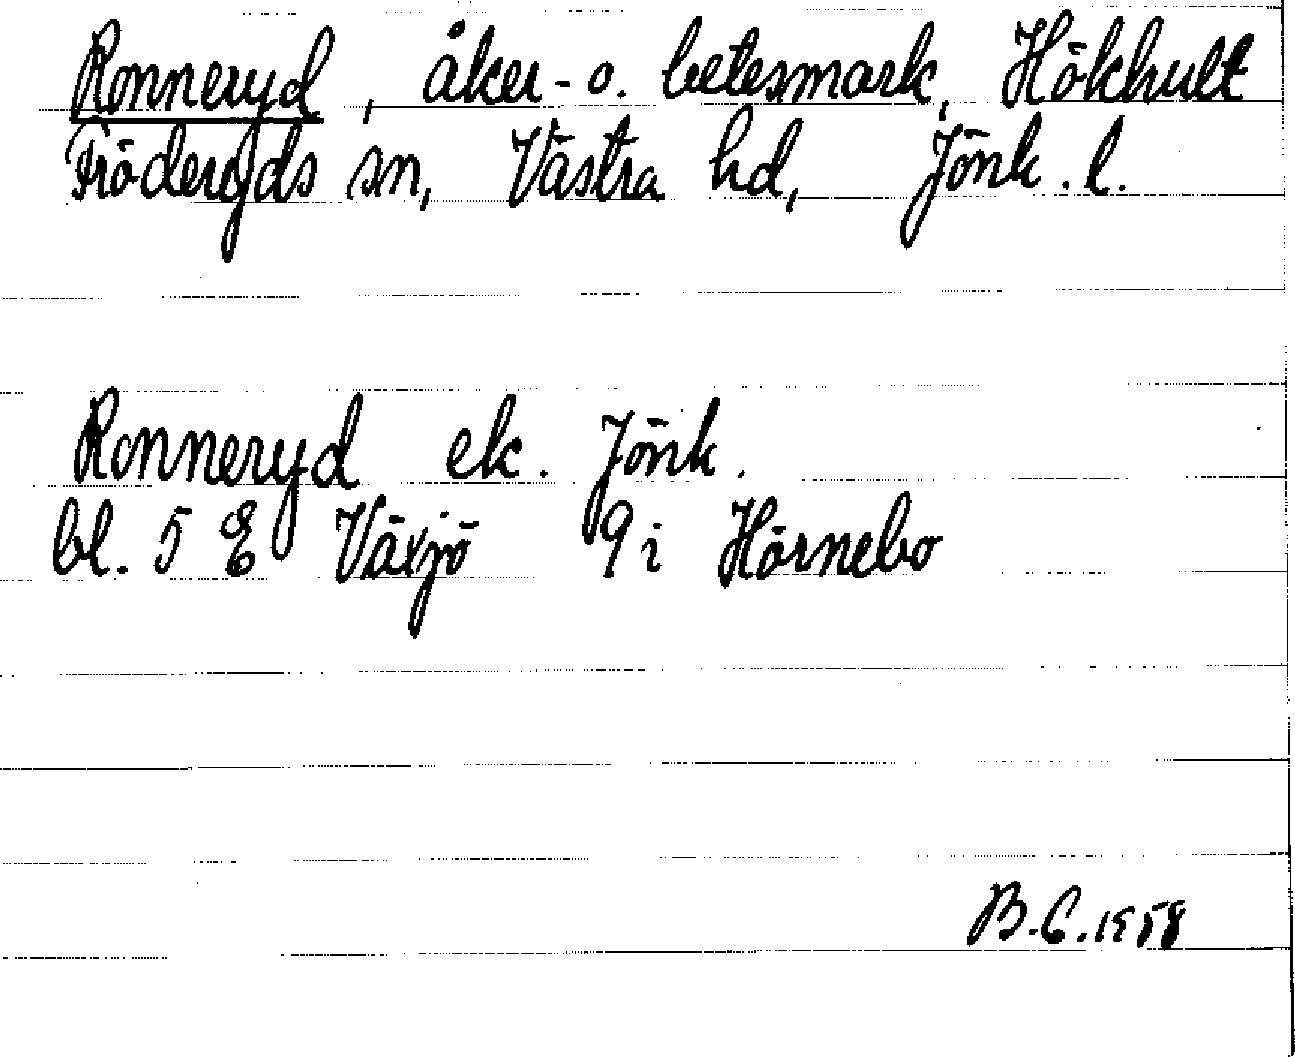 Ronneryd, åker- o. betesmark, Hökhult
Fröderyds sn, Västra hd, Jönk. l.
Ronneryd ek. Jönk.
bl. 5 E Växjö 9 i Hörnebo
B.C. 1958